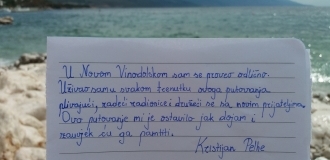 U Novom Vinodolskom sam se proveo odlično.
Uživao sam u svakom trenutku ovoga putovanja
plivajući, radeći radionice i družeći se sa novim prijateljima.
Ovo putovanje mi je ostavilo jak dojam i
zauvjek ću ga pamtiti.
Kristijan